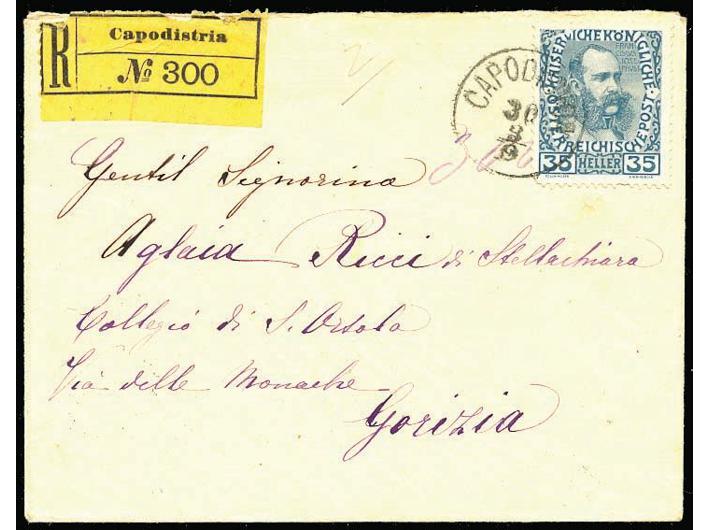 R
Capodistria
№ 300
CAPOD
30
3
9
KAISERLICHE KÖNIGLICHE
OSTERREICHISCHE POST
FRANCISCO
35 HELLER 35
Gentil Signorina
Aglaia Ricci di Stellachiara
Collegio di S. Orsola
Via delle Monache
Gorizia